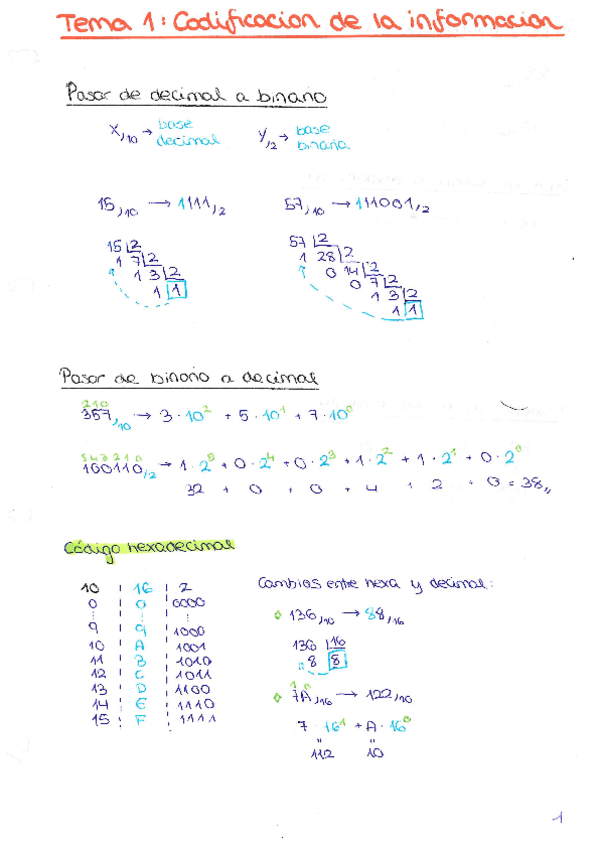 Tema 1: Codificacion de la informacion
Pasar de decimal a binario
X,10 → base decimal
Y,2 → base binaria
15,10 → 1111,2
57,10 → 111001,2
15 2
1 7 2
1 3 2
1 1
57 2
1 28 2
0 14 2
0 7 2
1 3 2
1 1
Pasar de binario a decimal
2 1 0
357,10 → 3·10² + 5·10¹ + 7·10⁰
5 4 3 2 1 0
100110,2 → 1·2⁵ + 0·2⁴ + 0·2³ + 1·2² + 1·2¹ + 0·2⁰
32 + 0 + 0 + 4 + 2 + 0 = 38,,
Código hexadecimal
10 | 16 | 2
0 | 0 | 0000
9 | 9 | 1000
10 | A | 1001
11 | B | 1010
12 | C | 1011
13 | D | 1100
14 | E | 1110
15 | F | 1111
Cambios entre hexa y decimal:
◇ 136,10 → 88,16
136 16
8 8
1 0
◇ 7A,16 → 122,10
7·16¹ + A·16⁰
" "
112 10
1